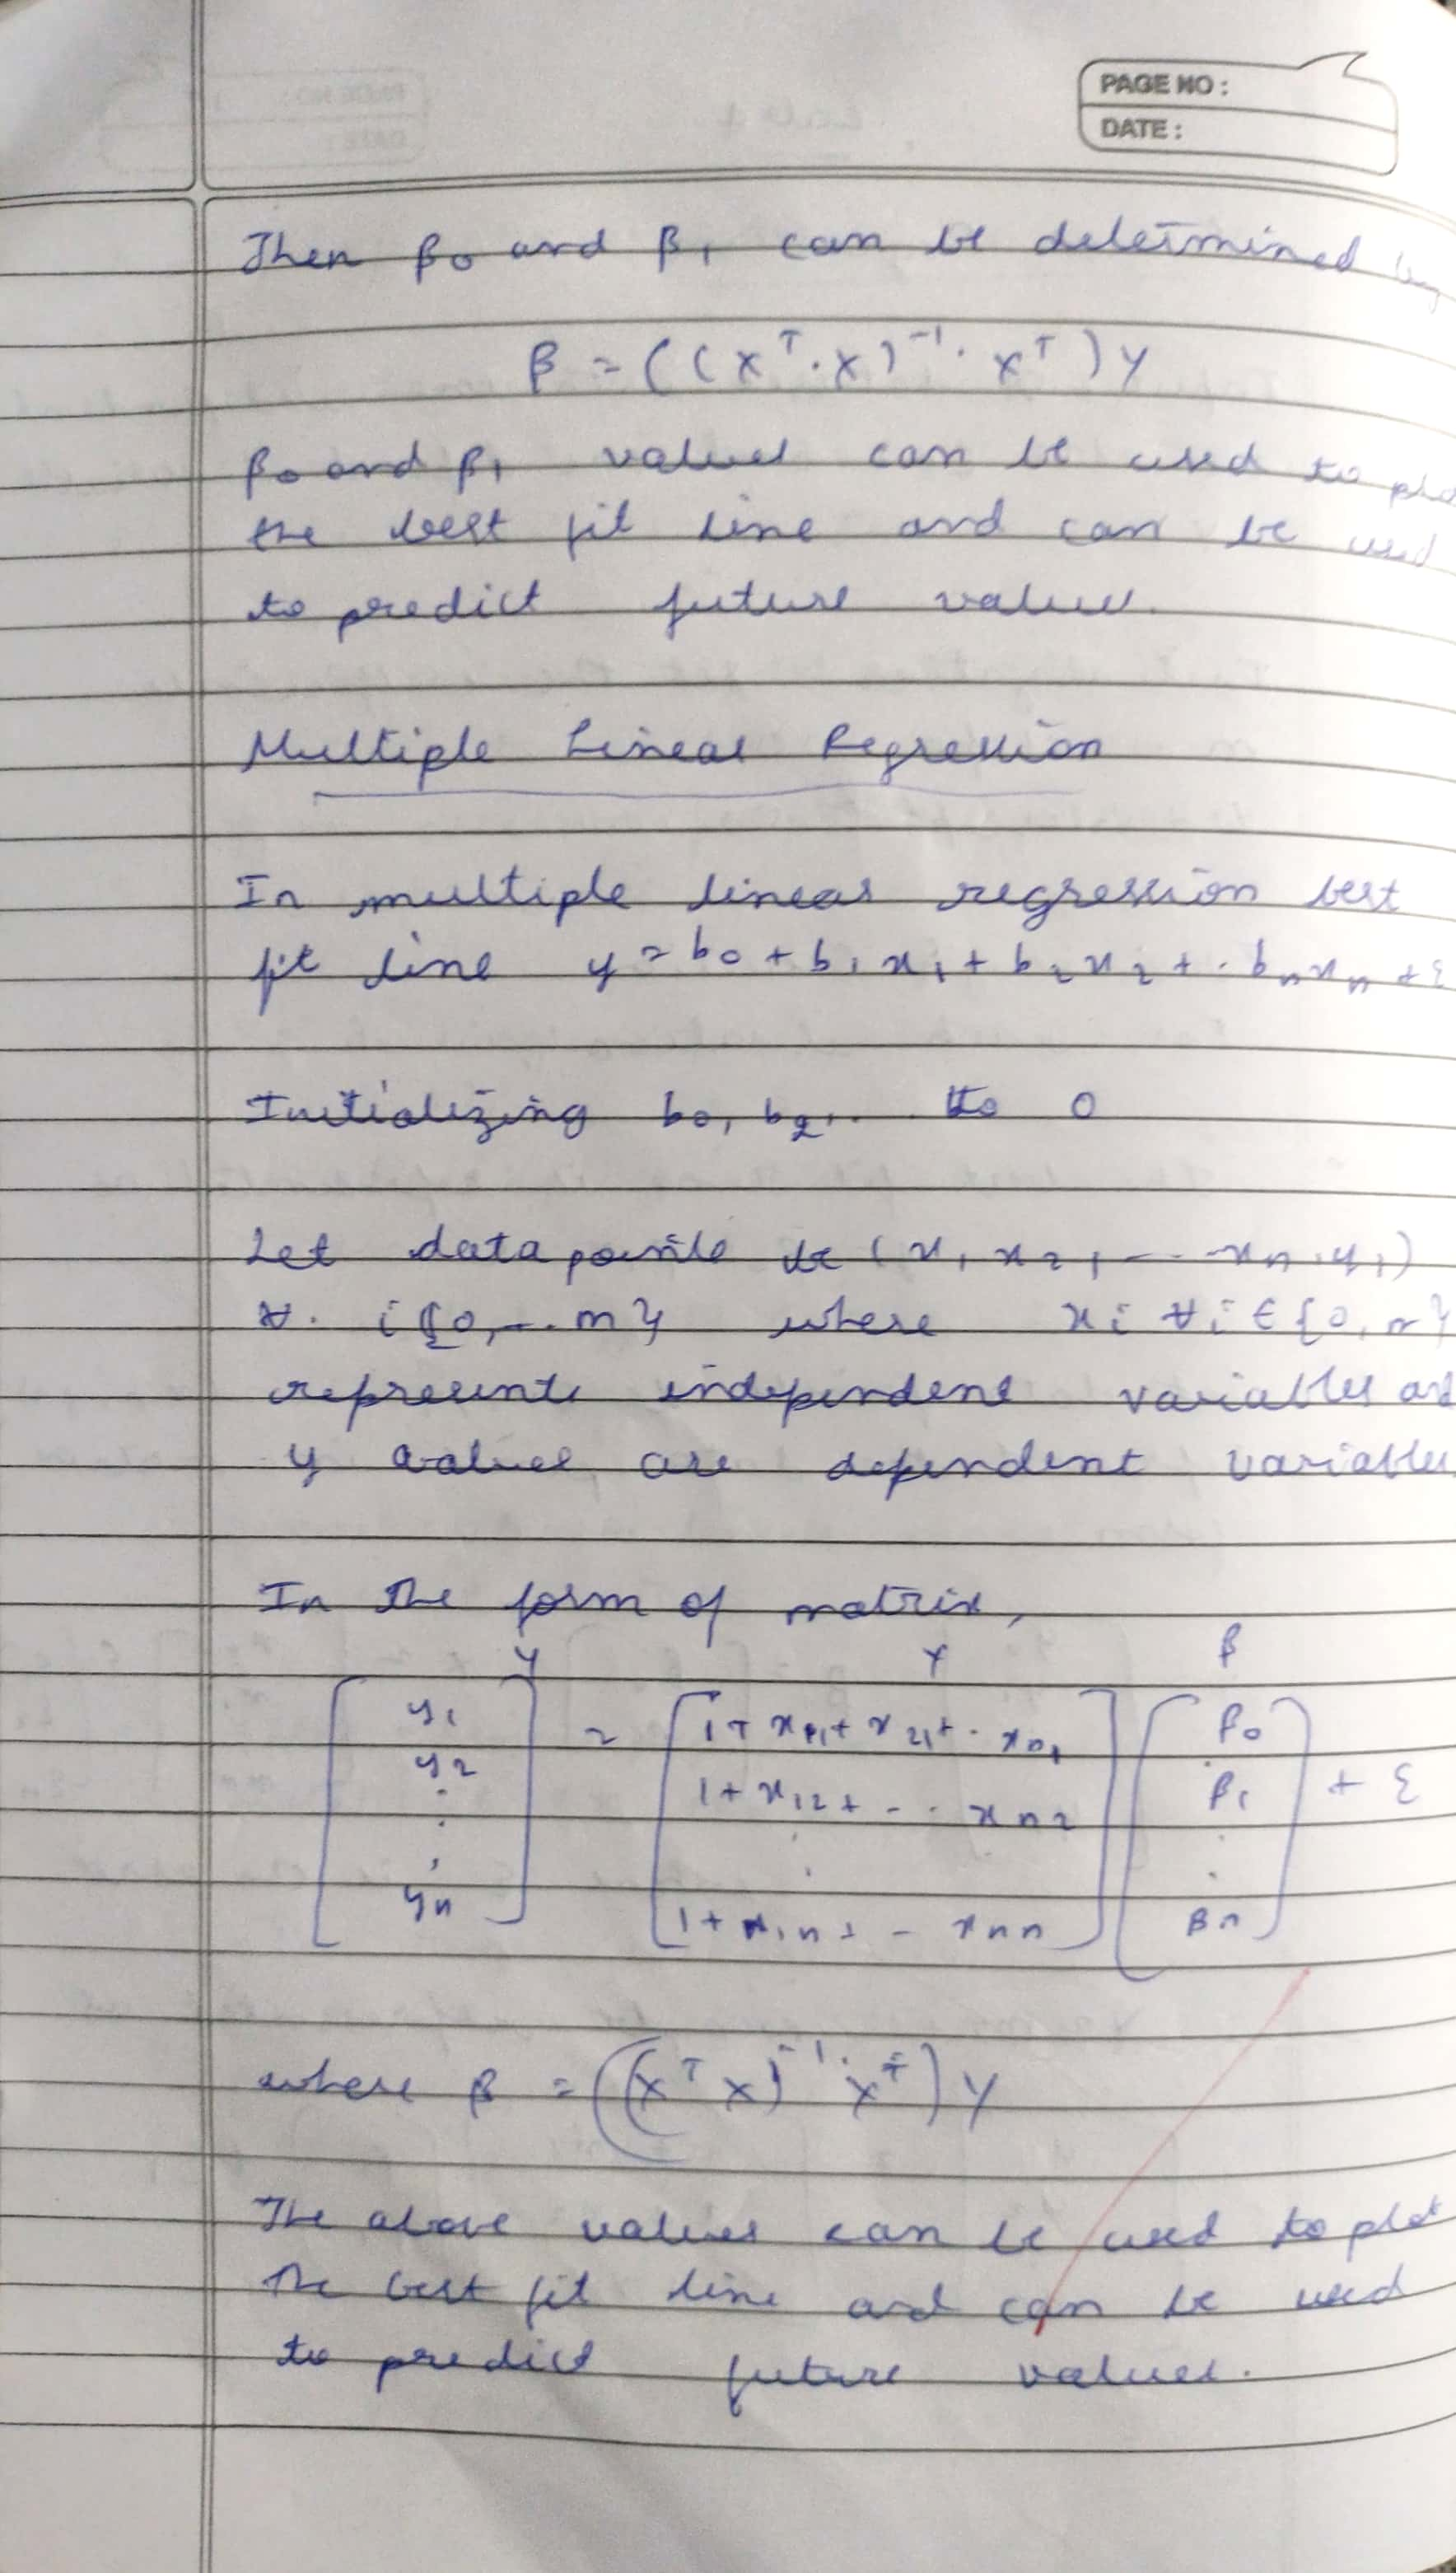 PAGE NO :
DATE :
Then β0 and β1 can be determined by
β = ((X^T . X)^-1 . X^T ) Y
β0 and β1 values can be used to plo
the best fit line and can be used
to predict future values.
Multiple Linear Regression
In multiple linear regression best
fit line y = b0 + b1 x1 + b2 x2 + . bn xn + ε
Initializing b0, b2, .. to 0
Let data points be (x1 x2, - - - xn, y1)
∀. i {0, -.. m} where xi ∀i ∈ {0, n}
represents independent variables and
y values are dependent variables
In the form of matrix,
Y X β
[ y1 y2 . . . yn ] = [ 1 + x11 + x21 + . xn1
1 + x12 + - . . xn2
.
.
1 + x1n + - xnn ] [ β0 β1 . . βn ] + ε
where β = ((X^T X)^-1 . X^T) Y
The above values can be used to plot
the best fit line and can be used
to predict future values.